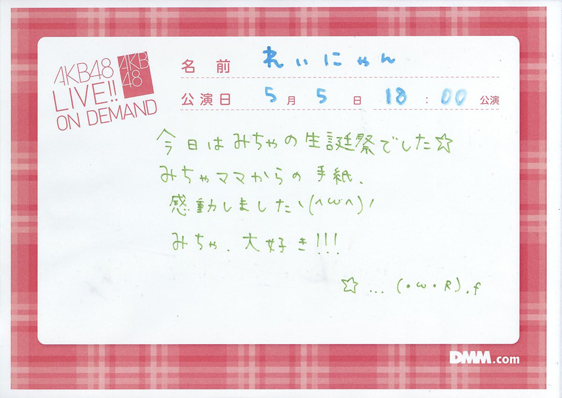 AKB48
LIVE!!
ON DEMAND
AKB
48
名前 れいにゃん
公演日 5月5日 18:00 公演
今日はみちゃの生誕祭でした☆
みちゃママからの手紙、
感動しました\(^ω^)/
みちゃ、大好き!!!
☆...(・ω・R).f
DMM.com